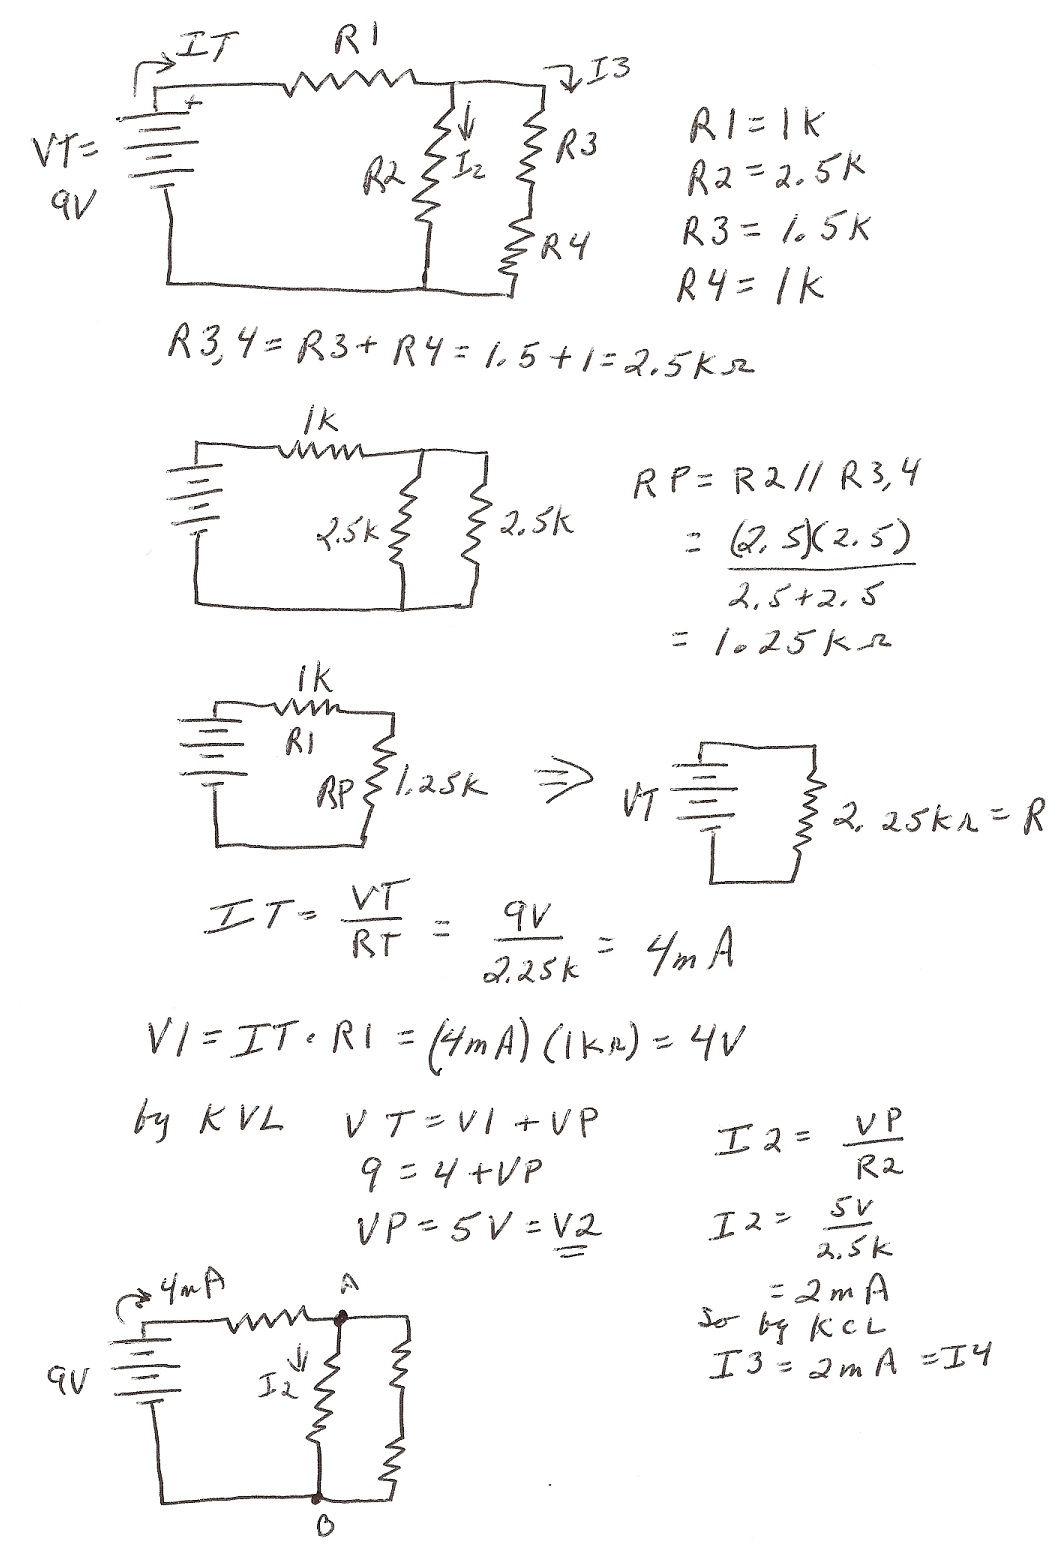 IT
R1
I3
+
VT=
9V
R2
I2
R3
R4
R1 = 1K
R2 = 2.5K
R3 = 1.5K
R4 = 1K
R3,4 = R3 + R4 = 1.5 + 1 = 2.5KΩ
1K
2.5K
2.5K
RP = R2 // R3,4
= (2.5)(2.5)
2.5+2.5
= 1.25KΩ
1K
R1
RP
1.25K
⇒
VT
2.25KΩ = R
IT = VT/RT = 9V/2.25K = 4mA
V1 = IT · R1 = (4mA)(1KΩ) = 4V
by KVL VT = V1 + VP
9 = 4 + VP
VP = 5V = V2
I2 = VP/R2
I2 = 5V/2.5K
= 2mA
So by KCL
I3 = 2mA = I4
4mA
A
9V
I2
B